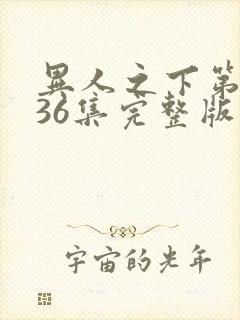 異人之下第
36集完整版
宇宙的光年